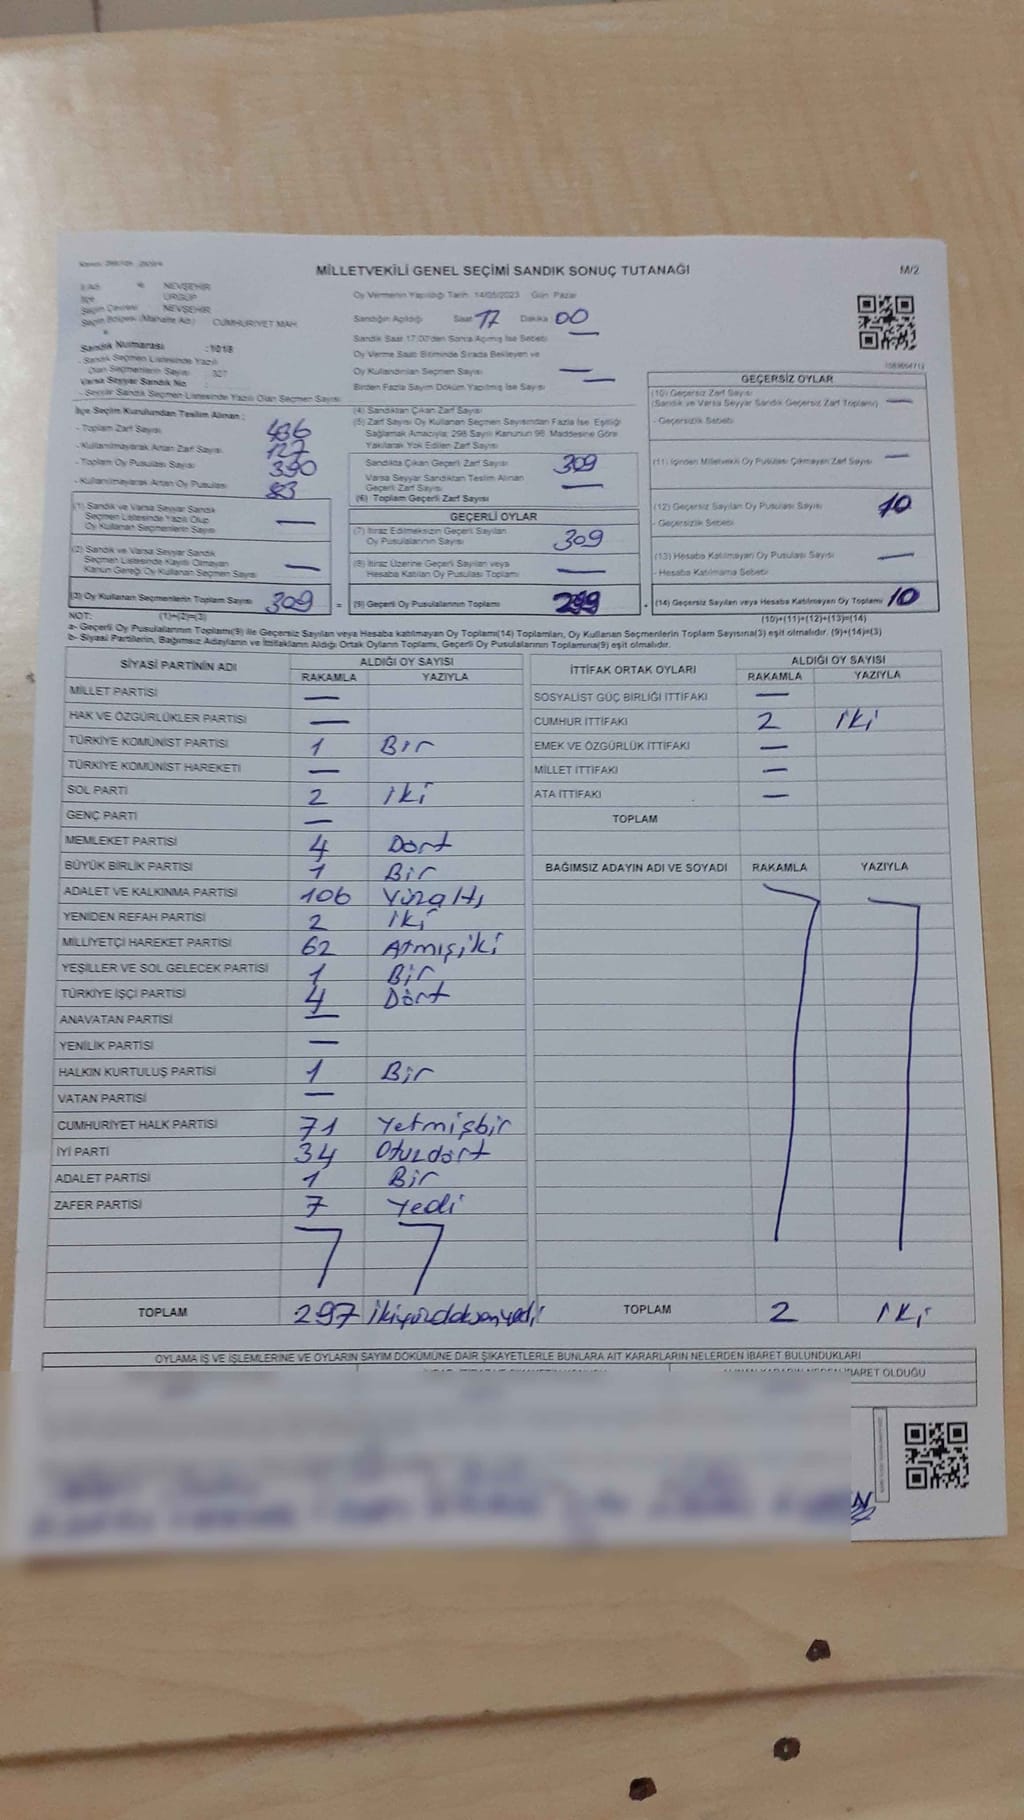 MİLLETVEKİLİ GENEL SEÇİMİ SANDIK SONUÇ TUTANAĞI
M/2
İl Adı NEVŞEHİR
İlçe ÜRGÜP
Seçim Çevresi NEVŞEHİR
Seçim Bölgesi (Mahalle Adı) CUMHURİYET MAH
Sandık Numarası :1018
- Sandık Seçmen Listesinde Yazılı
Olan Seçmenlerin Sayısı 327
Varsa Seyyar Sandık No
- Seyyar Sandık Seçmen Listesinde Yazılı Olan Seçmen Sayısı
Oy Vermenin Yapıldığı Tarih 14/05/2023 Gün Pazar
Sandığın Açıldığı Saat 17 Dakika 00
Sandık Saat 17:00'den Sonra Açılmış İse Sebebi —
Oy Verme Saati Bitiminde Sırada Bekleyen ve
Oy Kullandırılan Seçmen Sayısı —
Birden Fazla Sayım Döküm Yapılmış İse Sayısı —
İlçe Seçim Kurulundan Teslim Alınan :
- Toplam Zarf Sayısı 436
- Kullanılmayarak Artan Zarf Sayısı 127
- Toplam Oy Pusulası Sayısı 390
- Kullanılmayarak Artan Oy Pusulası 83
(1) Sandık ve Varsa Seyyar Sandık
Seçmen Listesinde Yazılı Olup
Oy Kullanan Seçmenlerin Sayısı —
(2) Sandık ve Varsa Seyyar Sandık
Seçmen Listesinde Kayıtlı Olmayan
Kanun Gereği Oy Kullanan Seçmen Sayısı —
(3) Oy Kullanan Seçmenlerin Toplam Sayısı 309
(4) Sandıktan Çıkan Zarf Sayısı
(5) Zarf Sayısı Oy Kullanan Seçmen Sayısından Fazla İse, Eşitliği
Sağlamak Amacıyla, 298 Sayılı Kanunun 98. Maddesine Göre
Yakılarak Yok Edilen Zarf Sayısı
Sandıkta Çıkan Geçerli Zarf Sayısı 309
Varsa Seyyar Sandıktan Teslim Alınan
Geçerli Zarf Sayısı —
(6) Toplam Geçerli Zarf Sayısı
GEÇERLİ OYLAR
(7) İtiraz Edilmeksizin Geçerli Sayılan
Oy Pusulalarının Sayısı 309
(8) İtiraz Üzerine Geçerli Sayılan veya
Hesaba Katılan Oy Pusulası Toplamı —
= (9) Geçerli Oy Pusulalarının Toplamı 299
GEÇERSİZ OYLAR
(10) Geçersiz Zarf Sayısı
(Sandık ve Varsa Seyyar Sandık Geçersiz Zarf Toplamı) —
- Geçersizlik Sebebi
(11) İçinden Milletvekili Oy Pusulası Çıkmayan Zarf Sayısı —
(12) Geçersiz Sayılan Oy Pusulası Sayısı 10
- Geçersizlik Sebebi
(13) Hesaba Katılmayan Oy Pusulası Sayısı —
- Hesaba Katılmama Sebebi
+ (14) Geçersiz Sayılan veya Hesaba Katılmayan Oy Toplamı 10
NOT: (1)+(2)=(3) (10)+(11)+(12)+(13)=(14)
a- Geçerli Oy Pusulalarının Toplamı(9) ile Geçersiz Sayılan veya Hesaba katılmayan Oy Toplamı(14) Toplamları, Oy Kullanan Seçmenlerin Toplam Sayısına(3) eşit olmalıdır. (9)+(14)=(3)
b- Siyasi Partilerin, Bağımsız Adayların ve İttifakların Aldığı Ortak Oyların Toplamı, Geçerli Oy Pusulalarının Toplamına(9) eşit olmalıdır.
SİYASİ PARTİNİN ADI ALDIĞI OY SAYISI
RAKAMLA YAZIYLA
MİLLET PARTİSİ —
HAK VE ÖZGÜRLÜKLER PARTİSİ —
TÜRKİYE KOMÜNİST PARTİSİ 1 Bir
TÜRKİYE KOMÜNİST HAREKETİ —
SOL PARTİ 2 iki
GENÇ PARTİ —
MEMLEKET PARTİSİ 4 Dört
BÜYÜK BİRLİK PARTİSİ 1 Bir
ADALET VE KALKINMA PARTİSİ 106 Yüzaltı
YENİDEN REFAH PARTİSİ 2 iki
MİLLİYETÇİ HAREKET PARTİSİ 62 Atmışiki
YEŞİLLER VE SOL GELECEK PARTİSİ 1 Bir
TÜRKİYE İŞÇİ PARTİSİ 4 Dört
ANAVATAN PARTİSİ —
YENİLİK PARTİSİ —
HALKIN KURTULUŞ PARTİSİ 1 Bir
VATAN PARTİSİ —
CUMHURİYET HALK PARTİSİ 71 Yetmişbir
İYİ PARTİ 34 Otuzdört
ADALET PARTİSİ 1 Bir
ZAFER PARTİSİ 7 Yedi
TOPLAM 297 ikiyüzdoksanyedi
İTTİFAK ORTAK OYLARI ALDIĞI OY SAYISI
RAKAMLA YAZIYLA
SOSYALİST GÜÇ BİRLİĞİ İTTİFAKI —
CUMHUR İTTİFAKI 2 iki
EMEK VE ÖZGÜRLÜK İTTİFAKI —
MİLLET İTTİFAKI —
ATA İTTİFAKI —
TOPLAM
BAĞIMSIZ ADAYIN ADI VE SOYADI RAKAMLA YAZIYLA
TOPLAM 2 iki
OYLAMA İŞ VE İŞLEMLERİNE VE OYLARIN SAYIM DÖKÜMÜNE DAİR ŞİKAYETLERLE BUNLARA AİT KARARLARIN NELERDEN İBARET BULUNDUKLARI
İBARET OLDUĞU